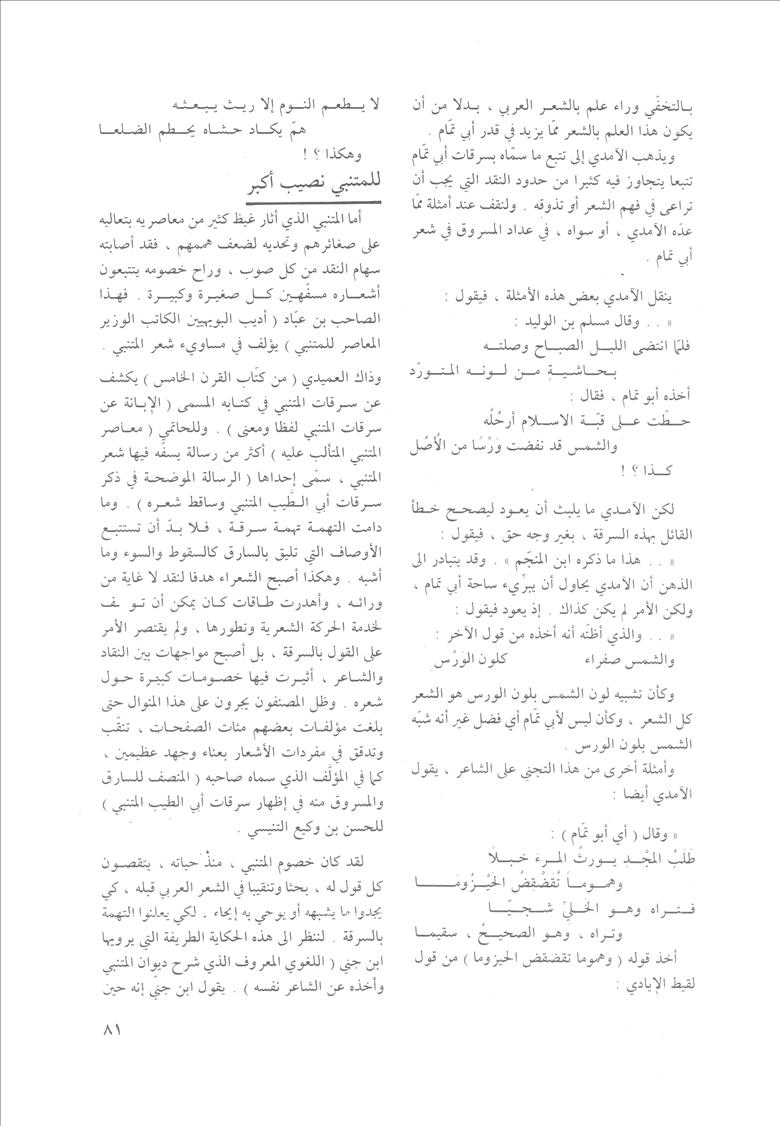 بالتخفّي وراء علم بالشعر العربي ، بدلا من أن
يكون هذا العلم بالشعر ممّا يزيد في قدر أبي تمّام .
ويذهب الآمدي إلى تتبع ما سمّاه بسرقات أبي تمّام
تتبعا يتجاوز فيه كثيرا من حدود النقد التي يجب أن
تراعى في فهم الشعر أو تذوقه . ولنقف عند أمثلة ممّا
عدّه الآمدي ، أو سواه ، في عداد المسروق في شعر
أبي تمام .
ينقل الآمدي بعض هذه الأمثلة ، فيقول :
« . . وقال مسلم بن الوليد :
فلمّا انتضى الليـل الصبـاح وصلتـه
بـحـاشيـةٍ مـن لـونـه المـتـورّد
أخذه أبو تمام ، فقال :
حـطّت عـلى قبّـة الاسـلام أرحُلُه
والشمس قد نفضت وَرْسًا من الأُصُل
كـذا ؟ !
لكن الآمـدي ما يلبث أن يعـود ليصحـح خـطأ
القائل بهذه السرقة ، بغير وجه حق ، فيقول :
« . . هذا ما ذكره ابن المنجّم » . وقد يتبادر الى
الذهن أن الآمدي يحاول أن يبرِّيء ساحة أبي تمام ،
ولكن الأمر لم يكن كذاك . إذ يعود فيقول :
« . . والذي أظنّه أنه أخذه من قول الآخر :
والشمس صفراء كلون الوَرْس
وكأن تشبيه لون الشمس بلون الورس هو الشعر
كل الشعر ، وكأن ليس لأبي تمّام أي فضل غير أنه شبّه
الشمس بلون الورس .
وأمثلة أخرى من هذا التجني على الشاعر ، يقول
الآمدي أيضا :
« وقال ( أي أبو تمّام ) :
طَلَبُ المجْـدِ يـورثُ المـرءَ خـبـلًا
وهـمـومـاً تُقَضْقِضُ الحَيْـزُومَـا
فـتـراه وهـو الخـليُّ شـجـيّـا
وتـراه ، وهـو الصحيـحُ ، سقيمـا
أخذ قوله ( وهموما تقضقض الحيزوما ) من قول
لقيط الإيادي :
لا يـطعـم النـوم إلا ريـث يـبـعـثـه
همّ يكـاد حـشـاه يحـطم الضـلعـا
وهكذا ؟ !
للمتنبي نصيب أكبر
أما المتنبي الذي أثار غيظ كثير من معاصريه بتعاليه
على صغائرهم وتحديه لضعف هممهم ، فقد أصابته
سهام النقد من كل صوب ، وراح خصومه يتتبعون
أشعـاره مسفّهـين كـل صغيـرة وكبيـرة . فهـذا
الصاحب بن عبّاد ( أديب البويهيين الكاتب الوزير
المعاصر للمتنبي ) يؤلف في مساوىء شعر المتنبي .
وذاك العميدي ( من كتّاب القرن الخامس ) يكشف
عن سـرقات المتنبي في كتابه المسمى ( الإبـانة عن
سرقات المتنبي لفظا ومعنى ) . وللحاتمي ( معـاصر
المتنبي المتألب عليه ) أكثر من رسالة يسفّه فيها شعر
المتنبي ، سمّى إحداها ( الرسالة الموضحـة في ذكر
سـرقات أبي الـطَّيب المتنبي وساقط شعـره ) . ومـا
دامت التهمـة تهمـة سـرقـة ، فـلا بـدّ أن تستتبـع
الأوصاف التي تليق بالسارق كالسقوط والسوء وما
أشبه . وهكذا أصبح الشعراء هدفا لنقد لا غاية من
ورائـه ، وأهدرت طـاقات كـان يمكن أن
لخدمة الحركة الشعرية وتطورها ، ولم يقتصر الأمر
على القول بالسرقة ، بل أصبح مواجهات بين النقاد
والشـاعر ، أثيـرت فيهـا خصـومـات كبيـرة حـول
شعره . وظل المصنفون يجرون على هذا المنوال حتى
بلغت مؤلفـات بعضهم مئات الصفحـات ، تنقّب
وتدقق في مفردات الأشعار بعناء وجهد عظيمين ،
كما في المؤلَّف الذي سماه صاحبه ( المنصف للسارق
والمسروق منه في إظهار سرقات أبي الطيب المتنبي )
للحسن بن وكيع التنيسي .
لقد كان خصوم المتنبي ، منذُ حياته ، يتقصـون
كل قول له ، بحثا وتنقيبا في الشعر العربي قبله ، كي
يجدوا ما يشبهه أو يوحي به إيحاء . لكي يعلنوا التهمة
بالسرقة . لننظر الى هذه الحكاية الطريفة التي يرويها
ابن جني ( اللغوي المعروف الذي شرح ديوان المتنبي
وأخذه عن الشاعر نفسه ) . يقول ابن جنّي إنه حين
٨١